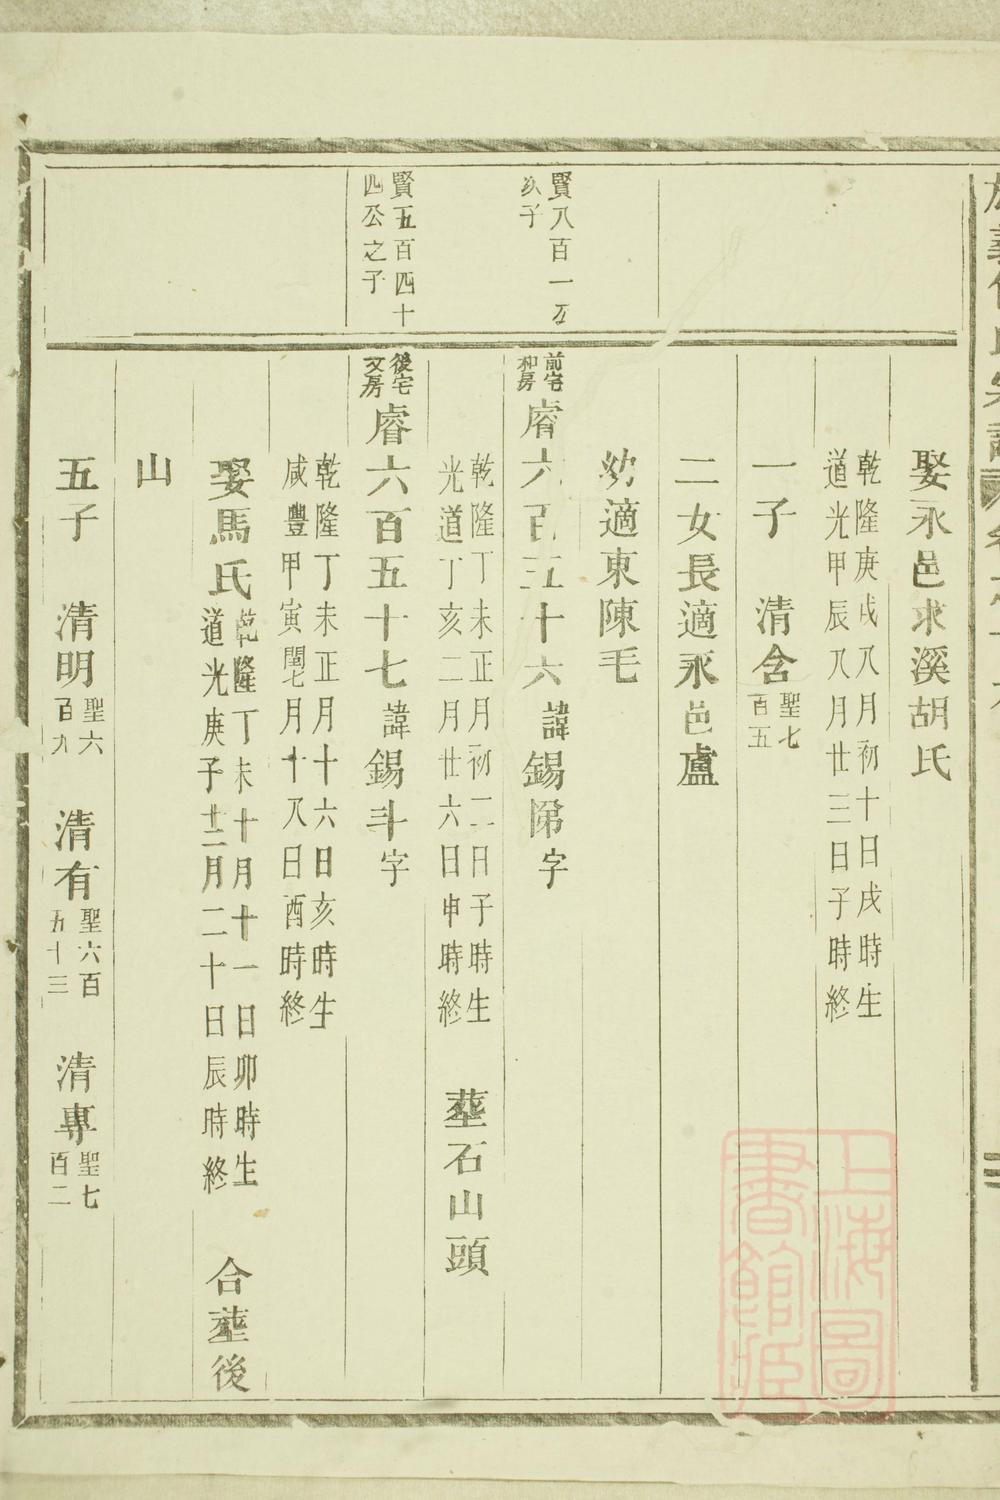 娶永邑求溪胡氏
乾隆庚戌八月初十日戌時生
道光甲辰八月廿三日子時終
一子　清含聖七百五
二女長適永邑盧
幼適東陳毛
賢八百一五
公子
前宅和房
睿六百五十六諱錫隄字
乾隆丁未正月初二日子時生
光道丁亥二月廿六日申時終
塟石山頭
賢五百四十
四公之子
後宅文房
睿六百五十七諱錫斗字
乾隆丁未正月十六日亥時生
咸豐甲寅閏七月十八日酉時終
娶馬氏
乾隆丁未十月十一日卯時生
道光庚子十二月二十日辰時終
合塟後
山
五子　清明聖六百九　清有聖六百五十三　清專聖七百二
上海圖書館藏